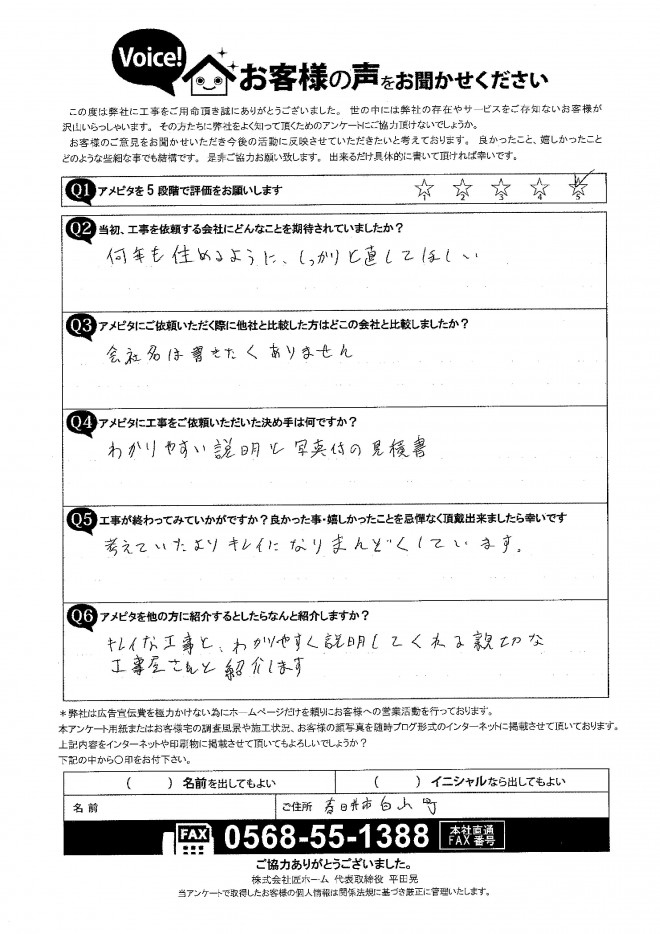 Voice!
お客様の声をお聞かせください
この度は弊社に工事をご用命頂き誠にありがとうございました。 世の中には弊社の存在やサービスをご存知ないお客様が
沢山いらっしゃいます。 その方たちに弊社をよく知って頂くためのアンケートにご協力頂けないでしょうか。
お客様のご意見をお聞かせいただき今後の活動に反映させていただきたいと考えております。 良かったこと、嬉しかったこと
どのような些細な事でも結構です。 是非ご協力お願い致します。 出来るだけ具体的に書いて頂ければ幸いです。
Q1 アメピタを5段階で評価をお願いします 1 2 3 4 5
Q2 当初、工事を依頼する会社にどんなことを期待されていましたか?
何年も住めるように、しっかりと直してほしい
Q3 アメピタにご依頼いただく際に他社と比較した方はどこの会社と比較しましたか?
会社名は書きたくありません
Q4 アメピタに工事をご依頼いただいた決め手は何ですか?
わかりやすい説明と写真付の見積書
Q5 工事が終わってみていかがですか?良かった事・嬉しかったことを忌憚なく頂戴出来ましたら幸いです
考えていたよりキレイになりまんどくしています。
Q6 アメピタを他の方に紹介するとしたらなんと紹介しますか?
キレイな工事と、わかりやすく説明してくれる親切な
工事屋さんと紹介します
*弊社は広告宣伝費を極力かけない為にホームページだけを頼りにお客様への営業活動を行っております。
本アンケート用紙またはお客様宅の調査風景や施工状況、お客様の顔写真を随時ブログ形式のインターネットに掲載させて頂いております。
上記内容をインターネットや印刷物に掲載させて頂いてもよろしいでしょうか?
下記の中から〇印をお付下さい。
( ) 名前を出してもよい ( ) イニシャルなら出してもよい
名前 ご住所 春日井市白山町
FAX 0568-55-1388 本社直通 FAX番号
ご協力ありがとうございました。
株式会社匠ホーム 代表取締役 平田晃
当アンケートで取得したお客様の個人情報は関係法規に基づき厳正に管理いたします。